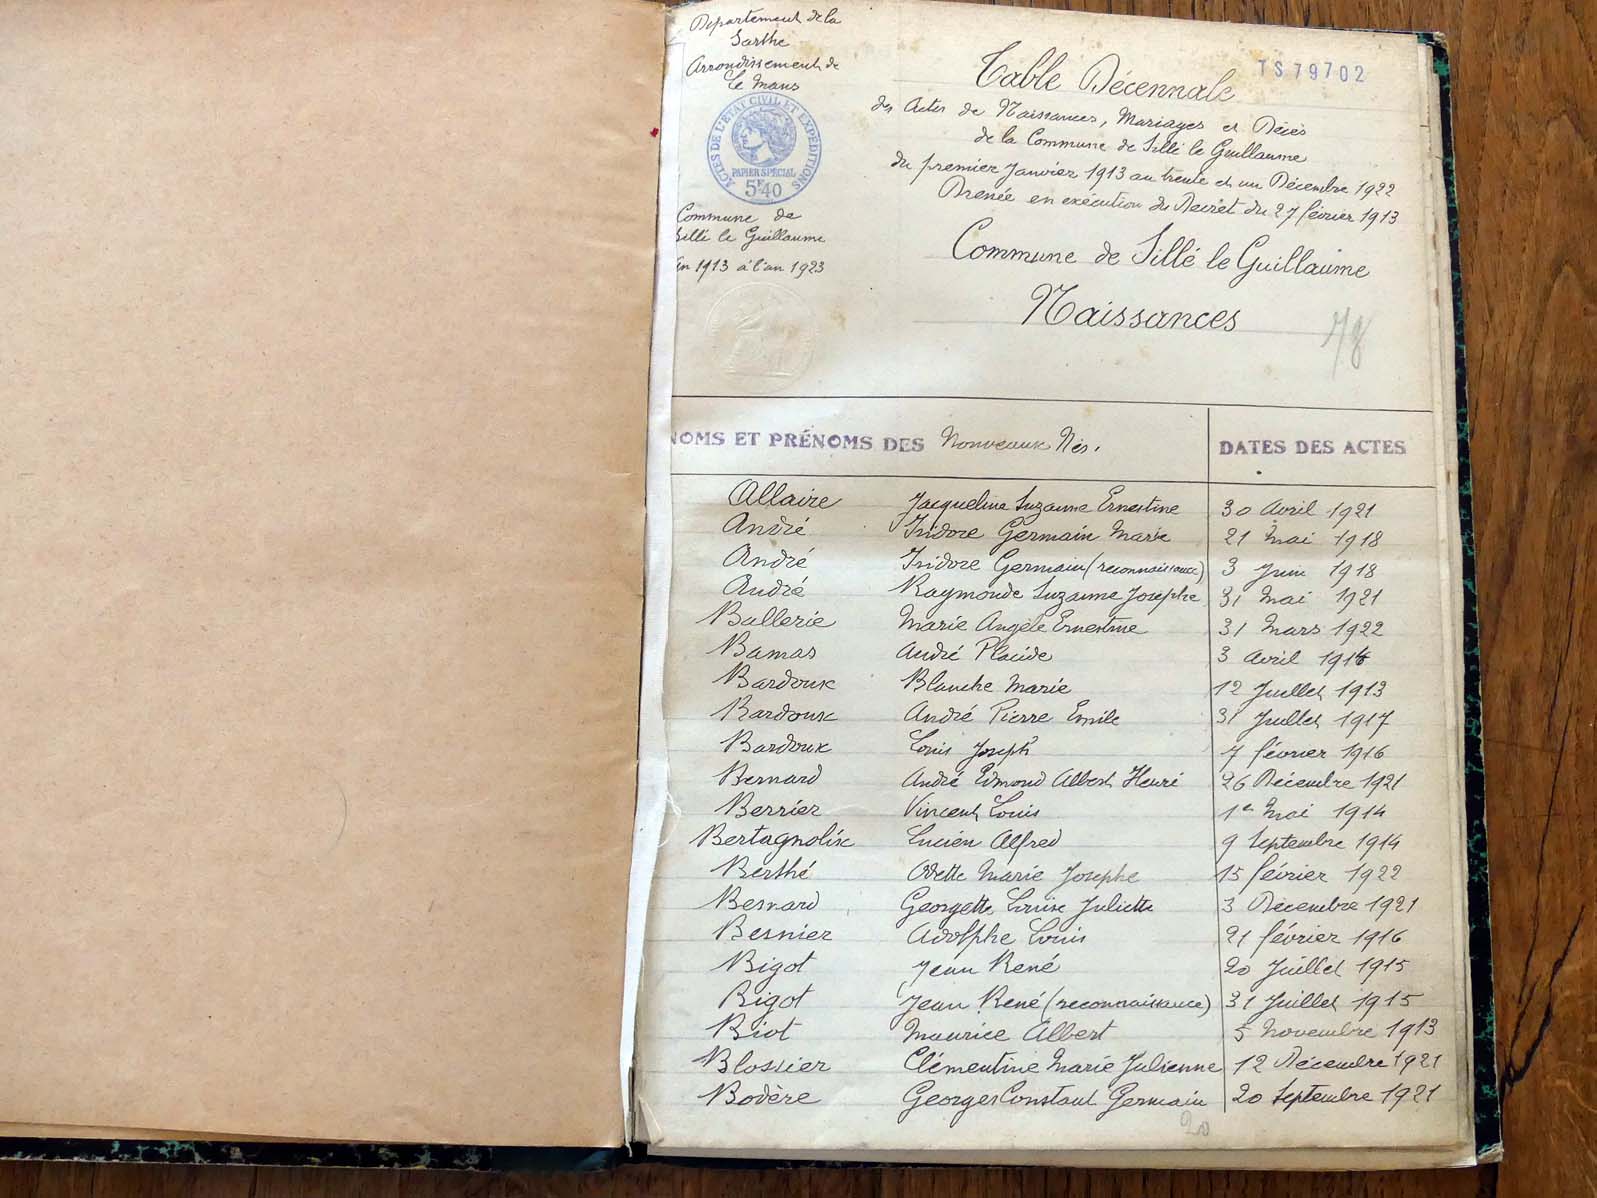 Département de la
Sarthe
Arrondissement de
Le Mans
ACTES DE L'ÉTAT CIVIL ET EXPÉDITIONS
PAPIER SPÉCIAL
5F40
Commune de
Sillé le Guillaume
an 1913 à l'an 1923
TS79702
Table Décennale
des Actes de Naissances, Mariages et Décès
de la Commune de Sillé le Guillaume
du premier Janvier 1913 au trente et un Décembre 1922
Dressée en exécution du Décret du 27 février 1913
Commune de Sillé le Guillaume
Naissances
78
NOMS ET PRÉNOMS DES Nouveaux Nés. DATES DES ACTES
Allaire Jacqueline Suzanne Ernestine 30 Avril 1921
André Isidore Germain Marie 21 Mai 1918
André Isidore Germain (reconnaissance) 3 Juin 1918
André Raymonde Suzanne Josèphe 31 Mai 1921
Ballerie Marie Angèle Ernestine 31 Mars 1922
Bamas André Placide 3 Avril 1914
Bardoux Blanche Marie 12 Juillet 1913
Bardoux André Pierre Emile 31 Juillet 1917
Bardoux Louis Joseph 7 février 1916
Bernard André Edmond Albert Henri 26 Décembre 1921
Berrier Vincent Louis 1er Mai 1914
Bertagnolix Lucien Alfred 9 Septembre 1914
Berthé Odette Marie Josephe 15 février 1922
Besnard Georgette Louise Juliette 3 Décembre 1921
Besnier Adolphe Louis 21 février 1916
Bigot Jean René 20 Juillet 1915
Bigot Jean René (reconnaissance) 31 Juillet 1915
Biot Maurice Albert 5 Novembre 1913
Blossier Clémentine Marie Julienne 12 Décembre 1921
Bodère Georges Constant Germain 20 Septembre 1921
20